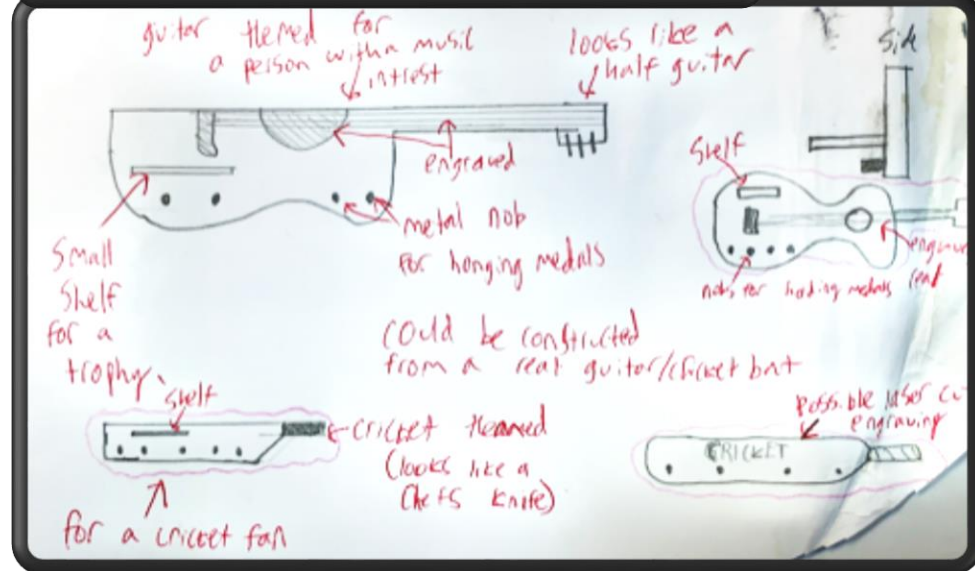 guitar themed for
a person with a music
intrest
looks like a
half guitar
Side
engraved
Shelf
metal nob
for hanging medals
Small
Shelf
for a
trophy
nobs for holding medals
engrave
could be constructed
from a real guitar/cricket bat
shelf
cricket themed
(looks like a
Chefs knife)
for a cricket fan
Possible laser cu
engraving
CRICKET